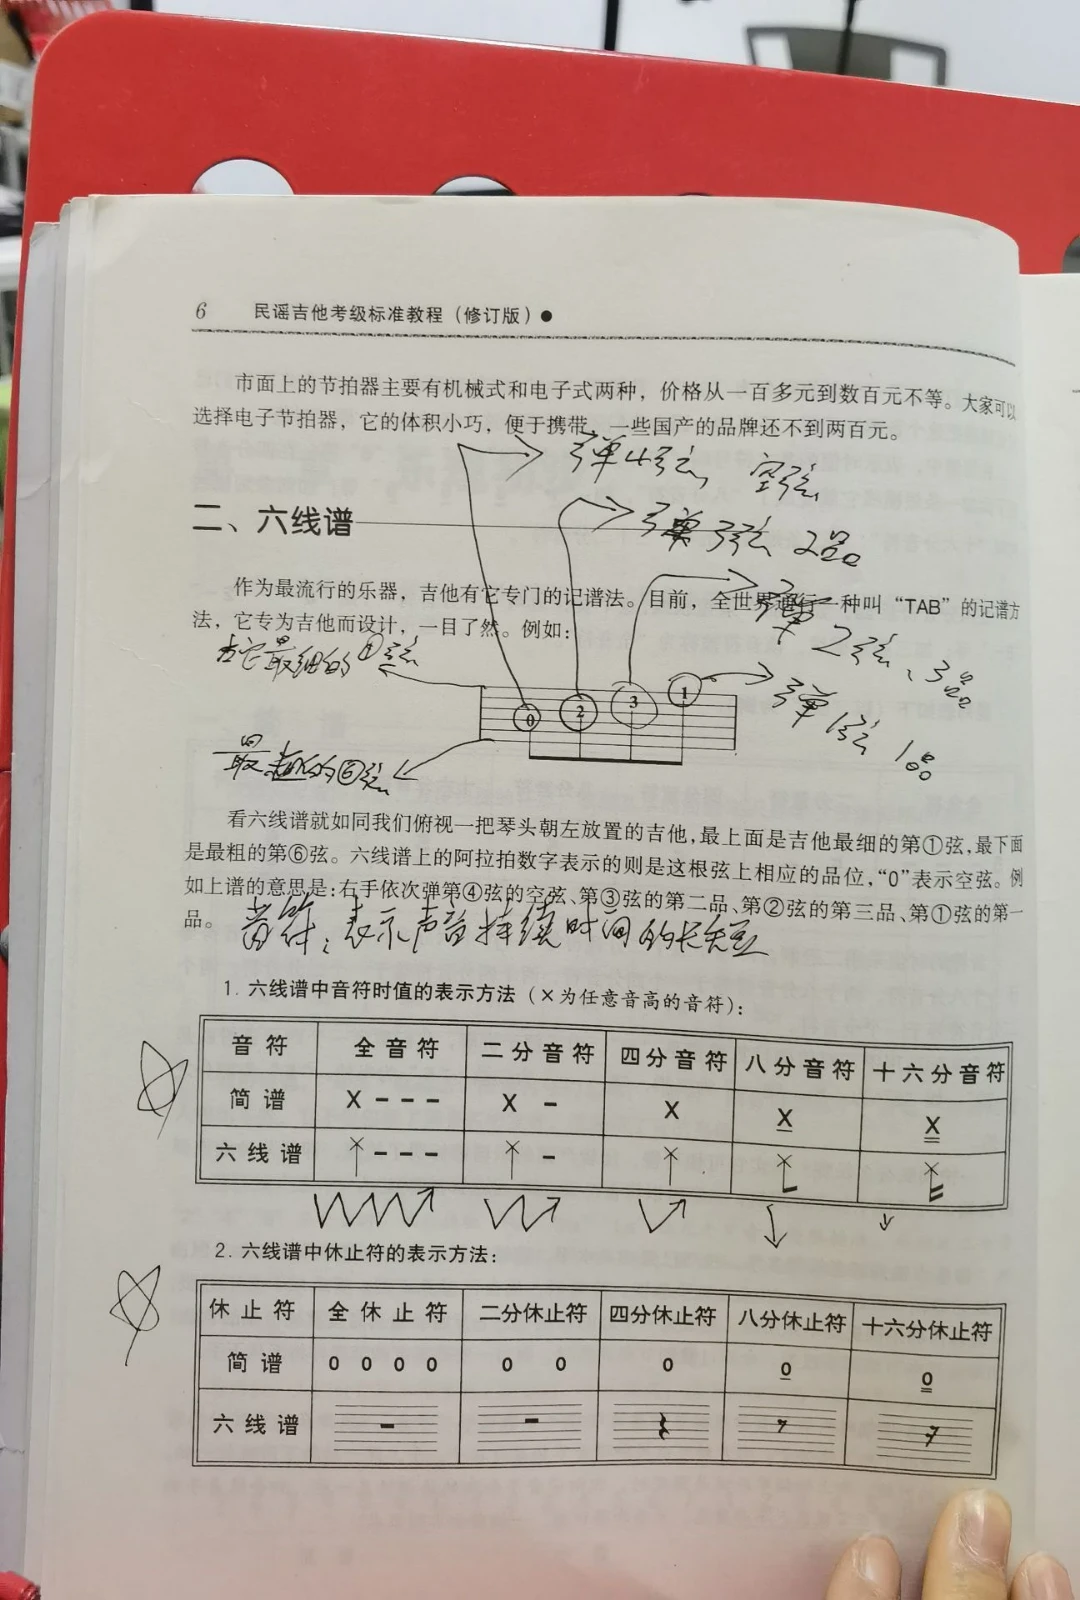 6 民谣吉他考级标准教程（修订版）●
市面上的节拍器主要有机械式和电子式两种，价格从一百多元到数百元不等。大家可以
选择电子节拍器，它的体积小巧，便于携带，一些国产的品牌还不到两百元。
弹4弦 空弦
二、六线谱
弹3弦 2品
作为最流行的乐器，吉他有它专门的记谱法。目前，全世界通行一种叫“TAB”的记谱方
法，它专为吉他而设计，一目了然。例如：
弹2弦、3品
最细的①弦
0 2 3 1
弹1弦 1品
最粗的⑥弦
看六线谱就如同我们俯视一把琴头朝左放置的吉他，最上面是吉他最细的第①弦，最下面
是最粗的第⑥弦。六线谱上的阿拉拍数字表示的则是这根弦上相应的品位，“0”表示空弦。例
如上谱的意思是：右手依次弹第④弦的空弦、第③弦的第二品、第②弦的第三品、第①弦的第一
品。
音符：表示声音持续时间的长短
1. 六线谱中音符时值的表示方法（×为任意音高的音符）：
音符 全音符 二分音符 四分音符 八分音符 十六分音符
简谱 X - - - X - X X X
六线谱 × - - - × - × × ×
2. 六线谱中休止符的表示方法：
休止符 全休止符 二分休止符 四分休止符 八分休止符 十六分休止符
简谱 0 0 0 0 0 0 0 0 0
六线谱